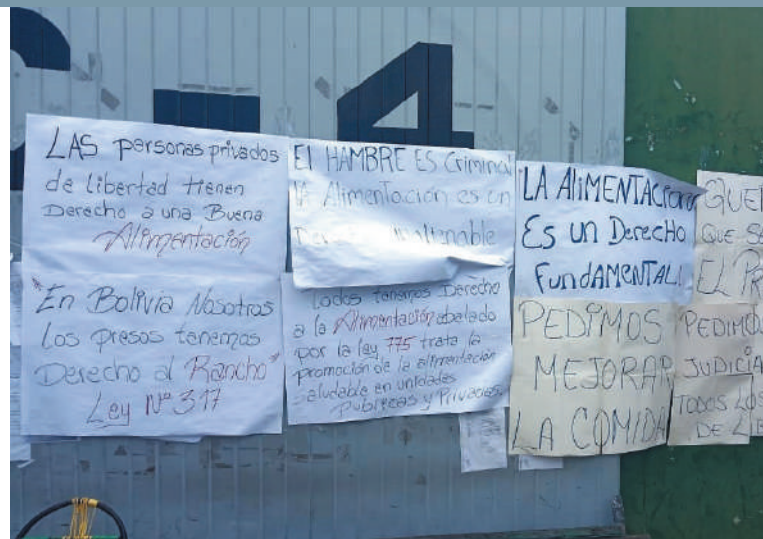 LAS personas privados
de libertad tienen
Derecho a una Buena
Alimentación
"En Bolivia Nosotros
Los presos tenemos
Derecho al Rancho"
Ley Nº 317
El HAMBRE ES Criminal
LA Alimentación es un
Todos tenemos Derecho
a la Alimentación abalado
por la ley 775 trata la
promoción de la alimentación
saludable en unidades
Publicas y Privadas.
"LA AliMENTACION
Es un Derecho
FundAMENTAL!
PEDIMOS
MEJORAR
LA COMIDA
QUE
EL
PEDIMOS
TODOS LOS
DE
4